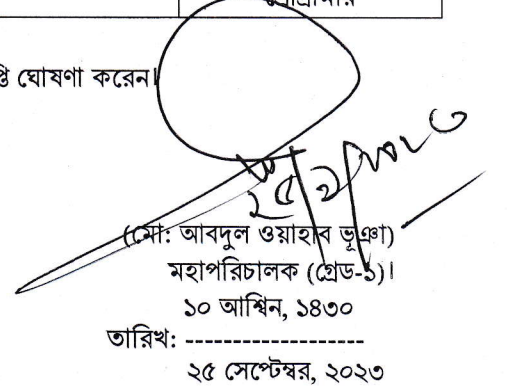 প্তি ঘোষণা করেন।
২৫/৯/২০২৩
(মো: আবদুল ওয়াহাব ভূঞা)
মহাপরিচালক (গ্রেড-১)।
১০ আশ্বিন, ১৪৩০
তারিখ: -------------------
২৫ সেপ্টেম্বর, ২০২৩